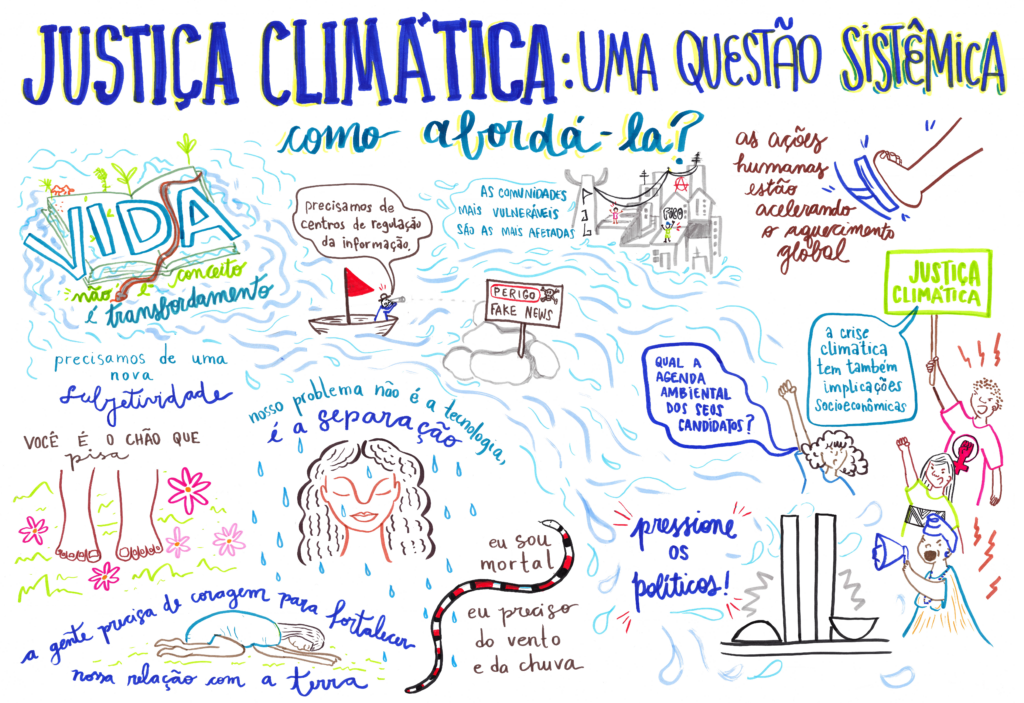 JUSTIÇA CLIMÁTICA: UMA QUESTÃO SISTÊMICA
como abordá-la?
VIDA
não é conceito
é transbordamento
precisamos de
centros de regulação
da informação.
AS COMUNIDADES
MAIS VULNERÁVEIS
SÃO AS MAIS AFETADAS
as ações
humanas
estão
acelerando
o aquecimento
global
PERIGO
FAKE NEWS
JUSTIÇA
CLIMÁTICA
a crise
climática
tem também
implicações
socioeconômicas
QUAL A
AGENDA
AMBIENTAL
DOS SEUS
CANDIDATOS?
precisamos de uma
nova
subjetividade
VOCÊ É O CHÃO QUE
pisa
nosso problema não é a tecnologia,
é a separação
eu sou
mortal
eu preciso
do vento
e da chuva
pressione
os
políticos!
a gente precisa de coragem para fortalecer
nossa relação com a terra